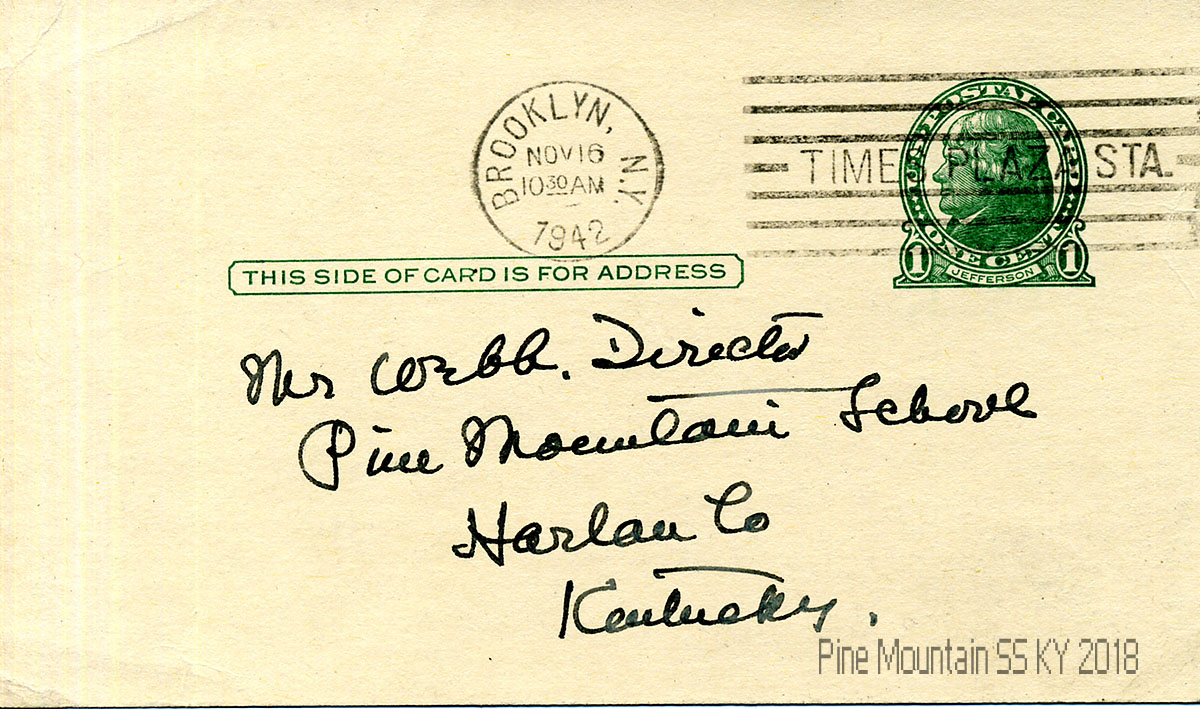 BROOKLYN, N.Y.
NOV 16
10 30 AM
1942
TIMES PLAZA STA.
U.S. POSTAL CARD
ONE CENT
1 JEFFERSON 1
THIS SIDE OF CARD IS FOR ADDRESS
Mr Webb. Director
Pine Mountain School
Harlan Co
Kentucky.
Pine Mountain SS KY 2018